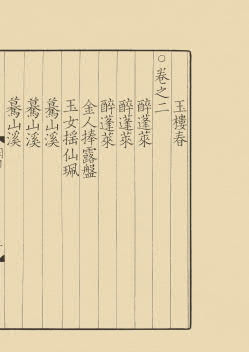 玉樓春
○卷之二
醉蓬萊
醉蓬萊
醉蓬萊
金人捧露盤
玉女搖仙珮
驀山溪
驀山溪
驀山溪